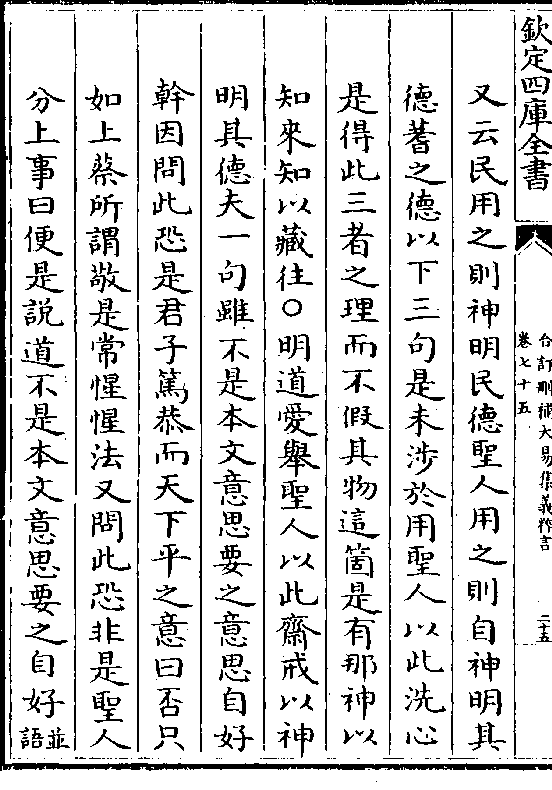 欽定四庫全書
合訂刪補大易集義粹言
卷七十五
二十五
又云民用之則神明民德聖人用之則自神明其
德蓍之德以下三句是未涉於用聖人以此洗心
是得此三者之理而不假其物這箇是有那神以
知來知以藏往○明道愛舉聖人以此齋戒以神
明其德夫一句雖不是本文意思要之意思自好
幹因問此恐是君子篤恭而天下平之意曰否只
如上蔡所謂敬是常惺惺法又問此恐非是聖人
分上事曰便是説道不是本文意思要之自好並語